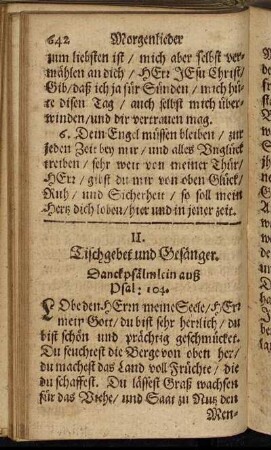 642 Morgenlieder
zum liebsten ist / mich aber selbst ver-
mählen an dich / HErr JEsu Christ /
Gib / daß ich ja für Sünden / mich hü-
te disen Tag / auch selbst mich über-
winden / und dir vertrauen mag.
6. Dein Engel müssen bleiben / zur
jeden Zeit bey mir / und alles Unglück
treiben / sehr weit von meiner Thür /
HErr / gibst du mir von oben Glück /
Ruh / und Sicherheit / so soll mein
Hertz dich loben / hier und in jener zeit.
II.
Tischgebet und Gesänger.
Danckpsälmlein auß
Psal: 104.
LObe den HErrn meine Seele / HErr
mein Gott / du bist sehr herlich / du
bist schön und prächtig geschmücket.
Du feuchtest die Berge von oben her /
du machest das Land voll Früchte / die
du schaffest. Du lässest Graß wachsen
für das Viehe / und Saat zu Nutz den
Men-